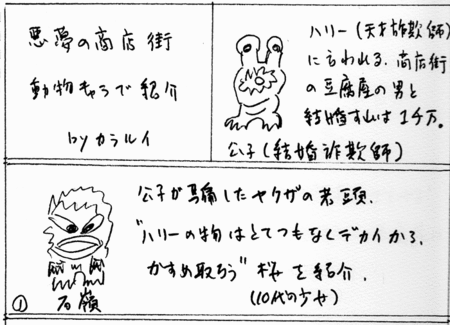 悪夢の商店街
動物キャラで紹介
by カラルイ
ハリー(天才詐欺師)
に言われる、商店街
の豆腐屋の男と
結婚すれば1千万。
公子(結婚詐欺師)
公子が騙したヤクザの若頭、
"ハリーの物はとてつもなくデカイから、
かすめ取ろう" 桜を紹介、
(10代の少女)
① 石嶺